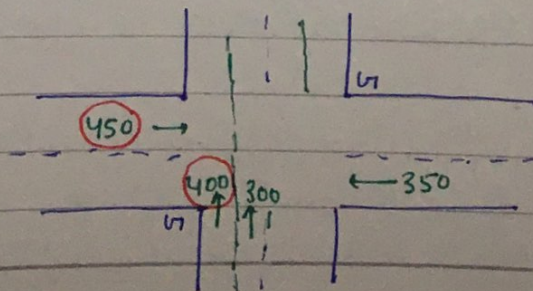 5
450 →
400 300 ← 350
5